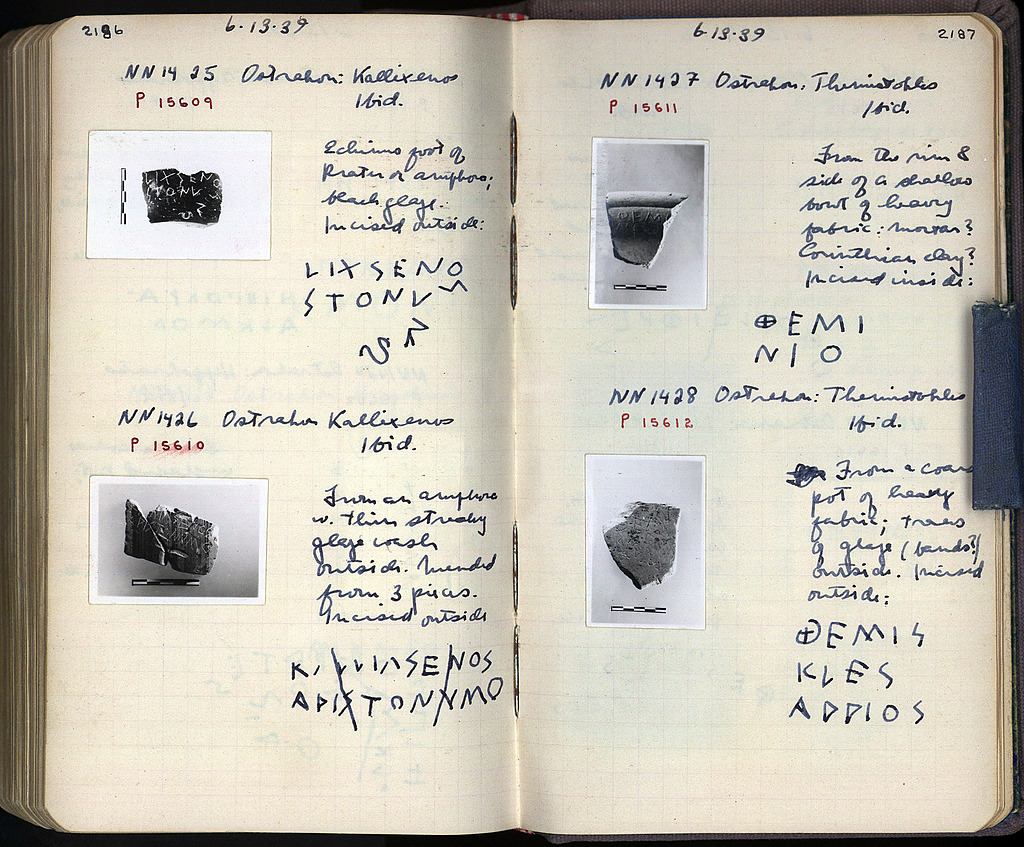 2186
6-13-39
NN1425 Ostrakon: Kallixenos
P 15609
Ibid.
Echinus foot of
krater or amphora;
black glaze.
Incised outside:
LIXSENO
STONV
NN1426 Ostrakon Kallixenos
P 15610
Ibid.
From an amphora
w. thin streaky
glaze wash
outside. Mended
from 3 pieces.
Incised outside
2187
6-13-39
NN1427 Ostrakon: Themistokles
P 15611
Ibid.
From the rim &
side of a shallow
bowl of heavy
fabric: mortar?
Corinthian clay?
Incised inside:
ⴲEMI
NIO
NN1428 Ostrakon: Themistokles
P 15612
Ibid.
From a coarse
pot of heavy
fabric; traces
of glaze (bands?)
outside. Incised
outside:
ⴲEMIS
KLES
ADDIOS